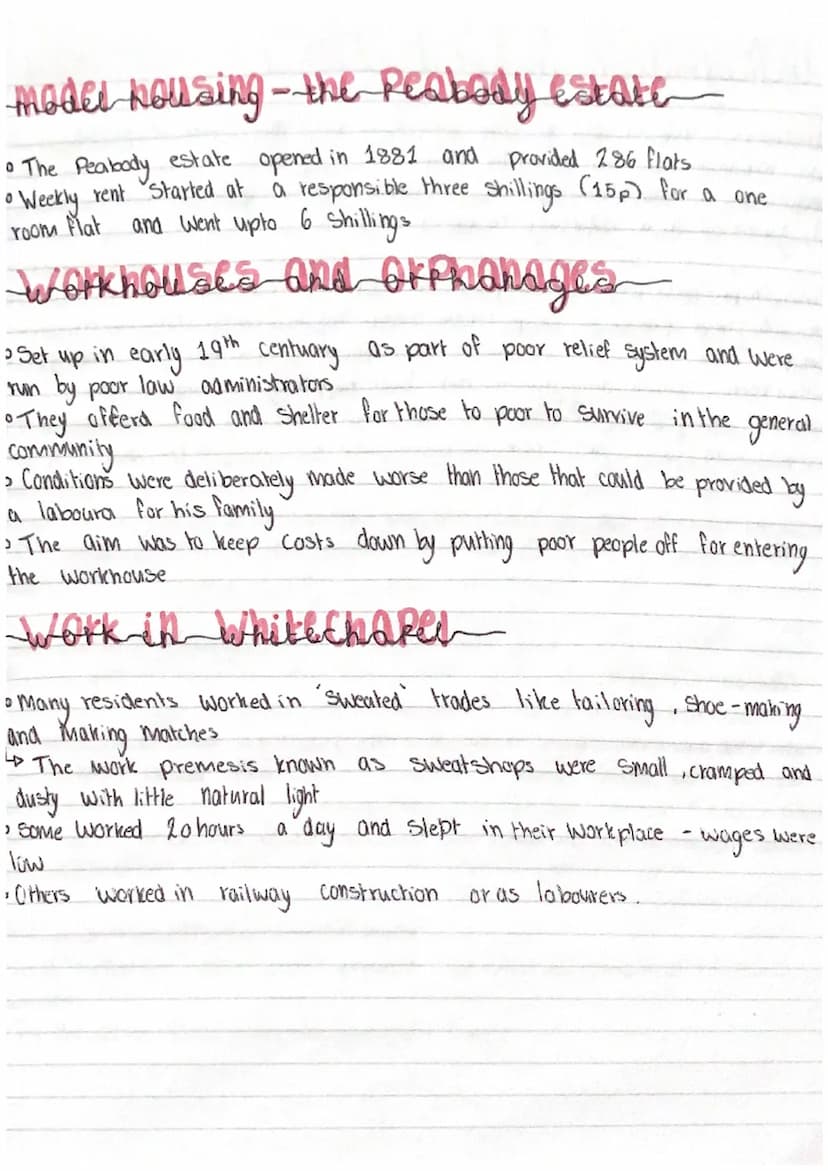 model housing - the Peabody estate
• The Peabody estate opened in 1881 and provided 286 flats
• Weekly rent started at a responsible three shillings (15p) for a one
room flat and went upto 6 shillings
Workhouses and orphanages
• Set up in early 19th centuary as part of poor relief system and were
run by poor law administrators
• They offerd food and shelter for those to poor to survive in the general
community
• Conditions were deliberately made worse than those that could be provided by
a laboura for his family
• The aim was to keep costs down by putting poor people off for entering
the workhouse
Work in Whitechapel
• Many residents worked in 'sweated' trades like tailoring, shoe-making
and making matches
↳ The work premesis known as sweatshops were small, cramped and
dusty with little natural light
• Some worked 20 hours a day and slept in their workplace - wages were
low
• Others worked in railway construction or as labourers.